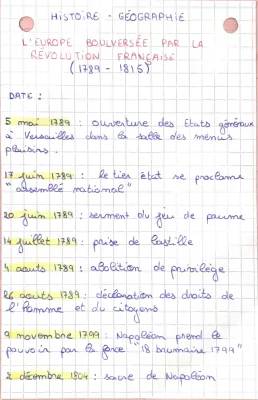 HISTOIRE - GÉOGRAPHIE
L'EUROPE BOULVERSÉE PAR LA
RÉVOLUTION FRANÇAISE
(1789 - 1815)
DATE :
5 mai 1789 : ouverture des Etats généraux
à Versailles dans la salle des menus
plaisirs.
17 juin 1789 : le tier état se proclame
"assemblé national"
20 juin 1789 : serment du jeu de paume
14 juillet 1789 : prise de bastille
4 aouts 1789 : abolition de privilège
26 aouts 1789 : déclaration des droits de
l'Homme et du citoyens
9 novembre 1799 : Napoléon prend le
pouvoir par la force "18 brumaire 1799"
2 décembre 1804 : sacre de Napoléon